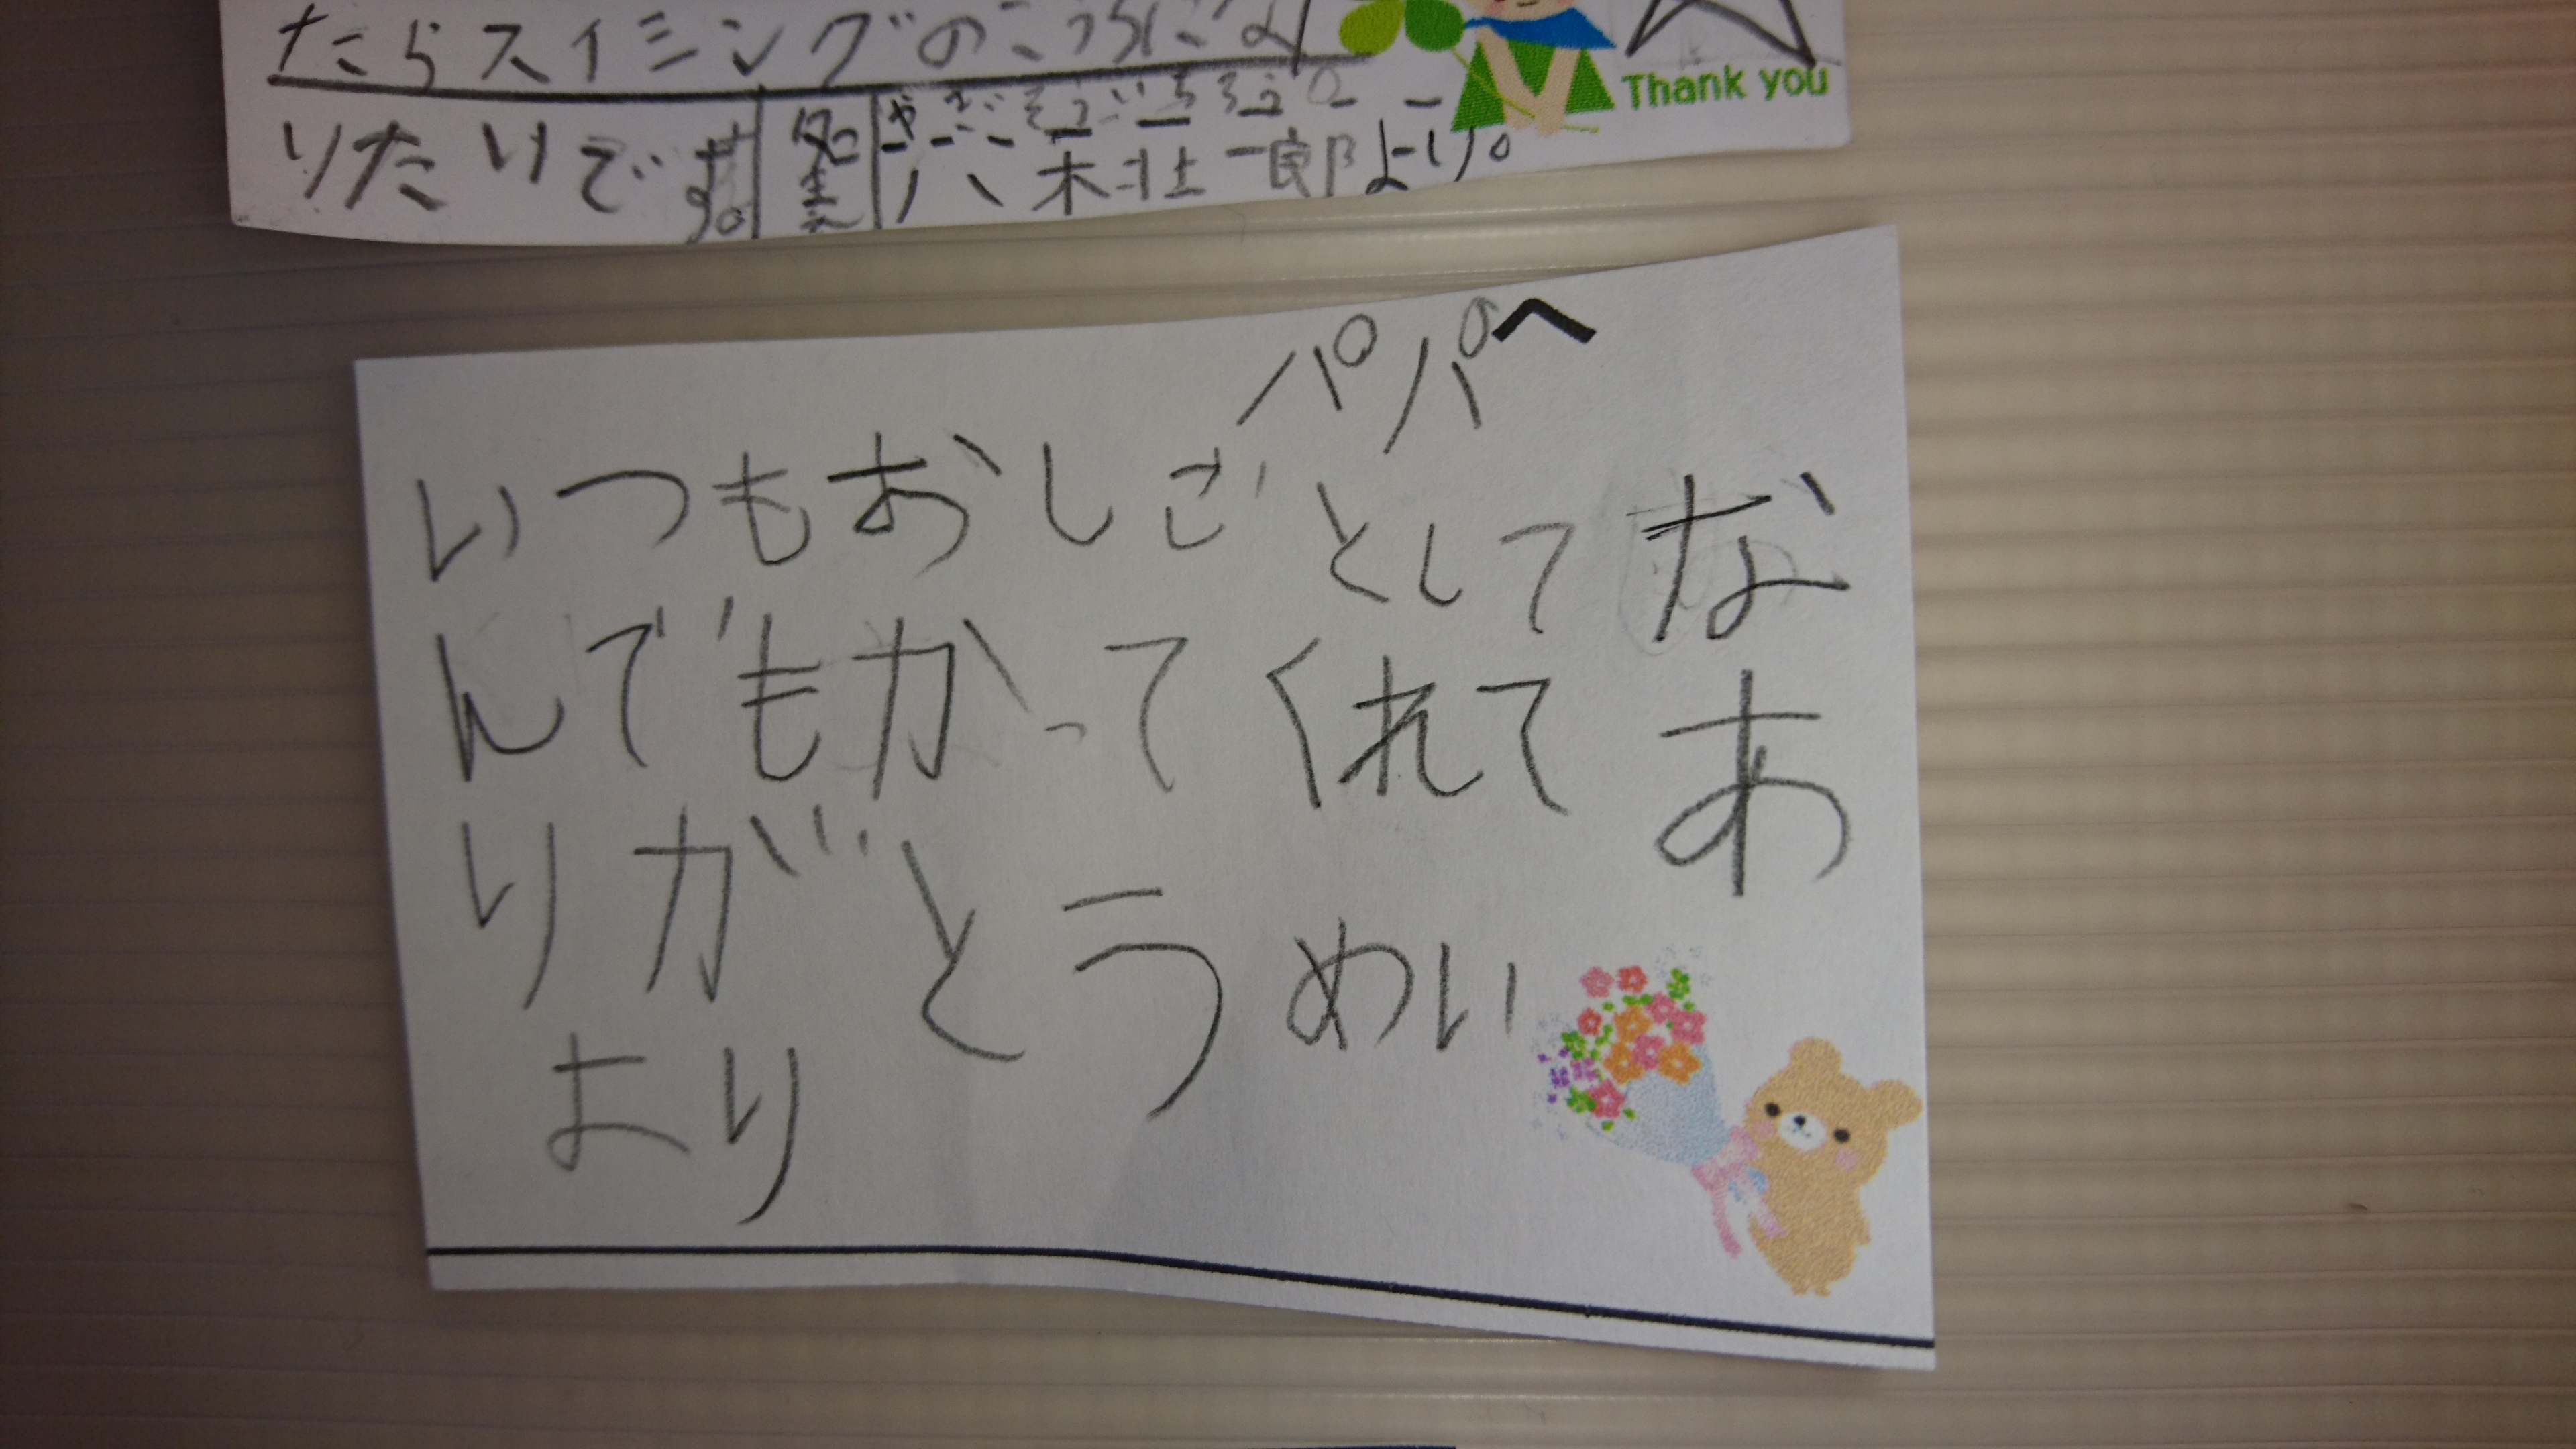 たらスイミングのこうちによ
Thank you
りたいです。
名まえ
やぎそういちろう
八木壮一郎より。
パパへ
いつもおしごとしてな
んでもかってくれてあ
りがとうめい
より